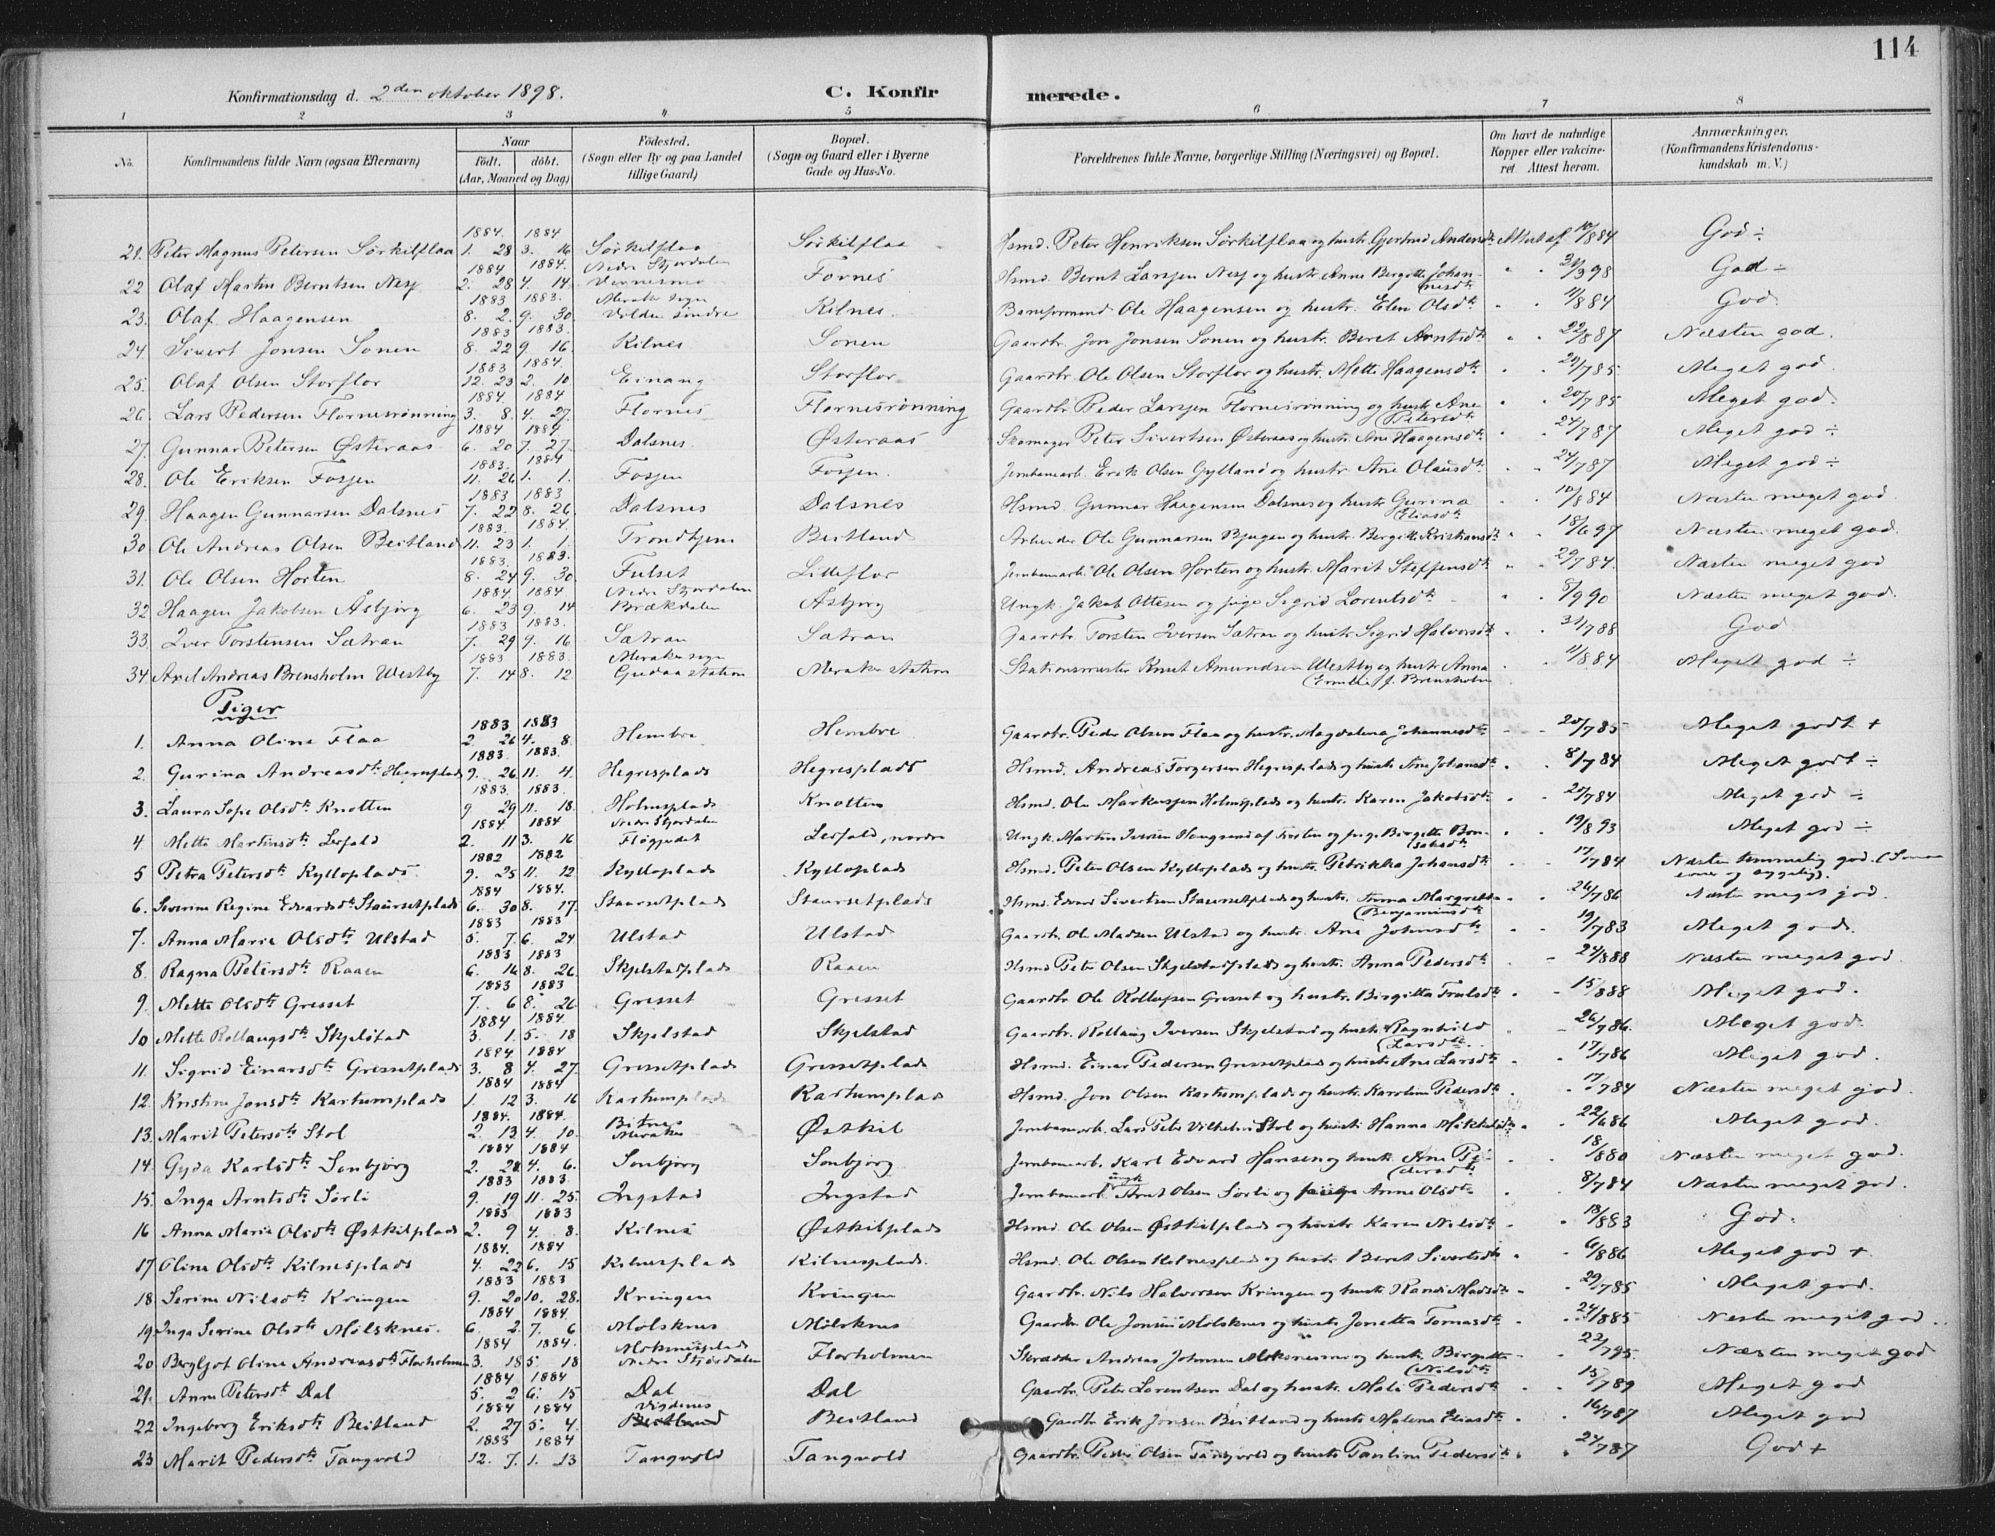 114
Konfirmationsdag d. 2den oktober 1898. C. Konfirmerede.
1 2 3 4 5 6 7 8
No. Konfirmandens fulde Navn (ogsaa Efternavn) Naar födt. döbt. (Aar, Maaned og Dag) Födested. (Sogn eller By og paa Landet tillige Gaard) Bopæl. (Sogn og Gaard eller i Byerne Gade og Hus-No. Forældrenes fulde Navne, borgerlige Stilling (Næringsvei) og Bopæl. Om havt de naturlige Kopper eller vakcineret Attest herom. Anmærkninger. (Konfirmandens Kristendomskundskab m. V.)
1884 1884
21. Peter Magnus Petersen Sörkilflaa 1. 28 3. 16 Sörkilflaa Sörkilflaa Hsmd. Peter Henriksen Sörkilflaa og hustr. Gjertrud Andersdtr Attest af 10/8 84 God ÷
1884 1884. Nedre Stjørdalen
22 Olaf Martin Berntsen Nesj 2. 28 4. 14 Vernesmo Fornes Hsmd. Bernt Larsen Nesj og hustr. Anne Bergitte Johannesdtr " " 31/3 98 God ÷
1883 1883. Meraker sogn
23. Olaf Haagensen 8. 2. 9. 30. Volden søndre Kilnes. Baneformand Ole Haagensen og hustr. Elen Olsdtr " " 11/8 84 God
1883 1883.
24 Sivert Jonsen Sonen 8. 22 9. 16. Kilnes Sonen Gaardbr. Jon Jonsen Sonen og hustr. Beret Arntsdtr " " 22/8 87 Næsten god.
1883 1884.
25. Olaf Olsen Storflor 12. 23 2. 10 Einang Storflor Gaardbr. Ole Olsen Storflor og hustr. Mette Haagensdtr " " 20/7 85 Meget god
1884 1884
26. Lars Pedersen Flornesrönning 3. 8 4. 27. Flornes Flornesrönning Gaardbr Peder Larsen Flornesrönning og hustr Ane Petersdtr " " 20/7 85 Meget god.
1884 1884
27. Gunnar Petersen Østeraas 6. 20 7. 27. Dalsnes Østeraas Skomager Peter Sivertsen Østeraas og hustr. Ane Haagensdtr " " 24/7 87 Meget god ÷
1883. 1884
28. Ole Eriksen Fossen 11. 26 1. 1. Fossen Fossen. Jernbanearb. Erik Olsen Gylland og hustr Ane Olausdtr " " 24/7 87 Meget god ÷
1883 1883
29 Haagen Gunnarsen Dalsnes 7. 22 8. 26. Dalsnes Dalsnes Hsmd. Gunnar Haagensen Dalsnes og hustr Gurina Eliasdtr " " 10/8 84 Næsten meget god
1883. 1884.
30 Ole Andreas Olsen Beitland 11. 23 1. 1. Trondhjem Beitland Arbeider Ole Gunnarsen Bjugen og hustr. Bergitte Kristiansdtr " " 18/6 97 Næsten meget god.
1883. 1883.
31. Ole Olsen Horten 8. 24 9. 30. Fulset Lilleflor Jernbanearb. Ole Olsen Horten og hustr. Marit Steffensdtr " " 29/7 84. Næsten meget god
1884. 1884 Nedre Stjørdalen
32 Haagen Jakobsen Åsbjörg 6. 23 9. 14 Brækdalen Åsbjörg Ungk. Jakob Ottesen og pige Sigrid Lorentsdtr " " 8/9 90 Næsten meget god.
1883 1883.
33. Iver Torstensen Sætran 7. 29 9. 16 Sætran Sætran Gaardbr. Torsten Iversen Sætran og hustr. Sigrid Halvorsdtr " " 31/7 88 God
1883 1883. Meraker sogn
34 Axel Andreas Brensholm Westby 7. 14 8. 12 Gudaa station Meraker station Stationsmester Knut Amundsen Westby og hustr Anna Emilie f. Brensholm " 11/8 84 Meget god ÷
Piger
1883 1883
1. Anna Oline Flaa 2. 26 4. 8. Hembre Hembre Gaardbr. Peder Olsen Flaa og hustr. Magdalena Johannesdtr " " 20/7 85 Meget godt +
1883 1883.
2. Gurina Andreasdtr Hegresplads 9. 26 11. 4. Hegresplads Hegresplads Hsmd. Andreas Torgersen Hegresplads og hustr Ane Johansdtr " " 8/7 84 Meget godt ÷
1883 1883.
3. Laura Sofie Olsdtr Knotten 9. 29 11. 18. Holmsplads Knotten Hsmd. Ole Markussen Holmsplads og hustr. Karen Jakobsdtr " " 25/7 84 Meget god ÷
1884 1884 Nedre Stjørdalen
4 Mette Martinsdtr Leifald 2. 11 3. 16 Leifald, nordre Ungk. Martin Iversen af Frosten og pige Birgitte " " 19/8 93 Meget god ÷
1882 1882
5 Petra Petersdtr Kylloplads 9. 25 11. 12 Kylloplads Kylloplads Hsmd. Peter Olsen Kylloplads og hustr. Petrikka Johansdtr " " 17/7 84 Næsten temmelig god.
1884 1884.
6. Severine Regine Edvardsdtr Staursetplads 6. 30 8. 17. Staursetplads Staursetplads Hsmd. Edvard Sivertsen Staursetplads og hustr. Anna Margrethe Benjaminsdtr " 26/7 86 Næsten meget god.
1883 1883
7. Anna Marie Olsdtr Ulstad 5. 7. 6. 24 Ulstad Ulstad Gaardbr. Ole Madsen Ulstad og hustr. Ane Johnsdtr " " 19/7 83 Meget god.
1883 1883
8. Ragna Petersdtr Raaen 6. 16 8. 26. Skjelstadplads Raaen Hsmd Peter Olsen Skjelstadplads og hustr. Anna Pedersdtr " 24/8 88 Næsten meget god
1883 1883
9. Mette Olsdtr Gresset 7. 6 8. 26 Gresset Gresset Gaardbr. Ole Rollaugsen Gresset og hustr. Birgitta Trulsdtr " " 15/8 88 Meget god.
1884 1884
10 Mette Rollaugsdtr Skjelstad 3. 1. 5. 18 Skjelstad Skjelstad Gaardbr. Rollaug Iversen Skjelstad og hustr. Ragnhild Larsdtr " 26/7 86. Meget god
1884 1884
11. Sigrid Einarsdtr Gressetplads 3. 8 4. 27. Gressetplads Gressetplads Hsmd. Einar Pedersen Gressetplads og hustr Ane Larsdtr " " 17/7 86 Meget god.
1884 1884
12. Kristine Jonsdtr Kartumplads 1. 12 3. 16 Kartumplads Kartumplads Hsmd. Jon Olsen Kartumplads og hustr. Karoline Pedersdtr " 17/7 84 Næsten meget god.
1884. 1884. Bitnes
13. Marit Petersdtr Stol 2. 13 4. 10. Meraker Østkil Jernbanearb. Lars Peter Vilhelm Stol og hustr. Hanna Mikkelsdtr " " 22/6 86 Meget god.
1884 1884
14. Gyda Karlsdtr Sonbjörg 2. 28 4. 6. Sonbjörg Sonbjörg Jernbanearb. Karl Edvard Hansen og hustr. Ane Pedersdtr " " 18/8 80 Næsten meget god.
1883 1883
15. Inga Arntsdtr Sørli 9. 19 11. 25. Ingstad Ingstad Jernbanearb. ungk Arnt Olsen Sørli og pige Anne Olsdtr " " 8/7 84 Næsten meget god.
1883 1883
16 Anna Maria Olsdtr Østkilplads 2. 9 4. 8. Kilnes Østkilplads Hsmd. Ole Olsen Østkilplads og hustr. Karen Nilsdtr " " 13/8 83 God.
1884. 1884
17 Oline Olsdtr Kilnesplads 4. 22 6. 15 Kilnesplads Kilnesplads. Hsmd. Ole Olsen Kilnesplads og hustr. Beret Sivertsdtr " " 6/8 86 Meget god +
1883 1883
18 Serine Nilsdtr Kringen 9. 20 10. 28. Kringen Kringen Gaardbr. Nils Halvorsen Kringen og hustr. Randi Madsdtr " " 29/7 85 Meget god.
1884 1884
19. Inga Serine Olsdtr Mölsknes. 6. 2. 7. 6 Mölsknes Mölsknes Gaardbr. Ole Jonsen Mölsknes og hustr. Jonetta Tomasdtr " " 24/8 85 Næsten meget god
1884 1884. Nedre Stjørdalen
20 Bergljot Oline Andreasdtr Florholmen 3. 18 5. 18 Florholmen Skrædder Andreas Johnsen og hustr. Birgitte Nilsdtr " " 22/7 95. Næsten meget god
1884 1884
21. Anne Petersdtr Dal 5. 2 6. 15 Dal Dal Gaardbr. Peter Lorentsen Dal og hustr. Mali Pedersdtr " " 15/7 89 Meget god
1884 1884 Vigdenes
22 Ingeborg Eriksdtr Beitland 2. 27 5. 4. Beitland Beitland Gaardbr Erik Jonsen Beitland og hustr Malena Eliasdtr " " 16/7 87 Meget god
1883 1884
23 Marit Pedersdtr Tangvold 12. 7. 1. 13 Tangvold Tangvold Gaardbr. Peder Olsen Tangvold og hustr Pauline Pedersdtr " " 24/7 87 God +